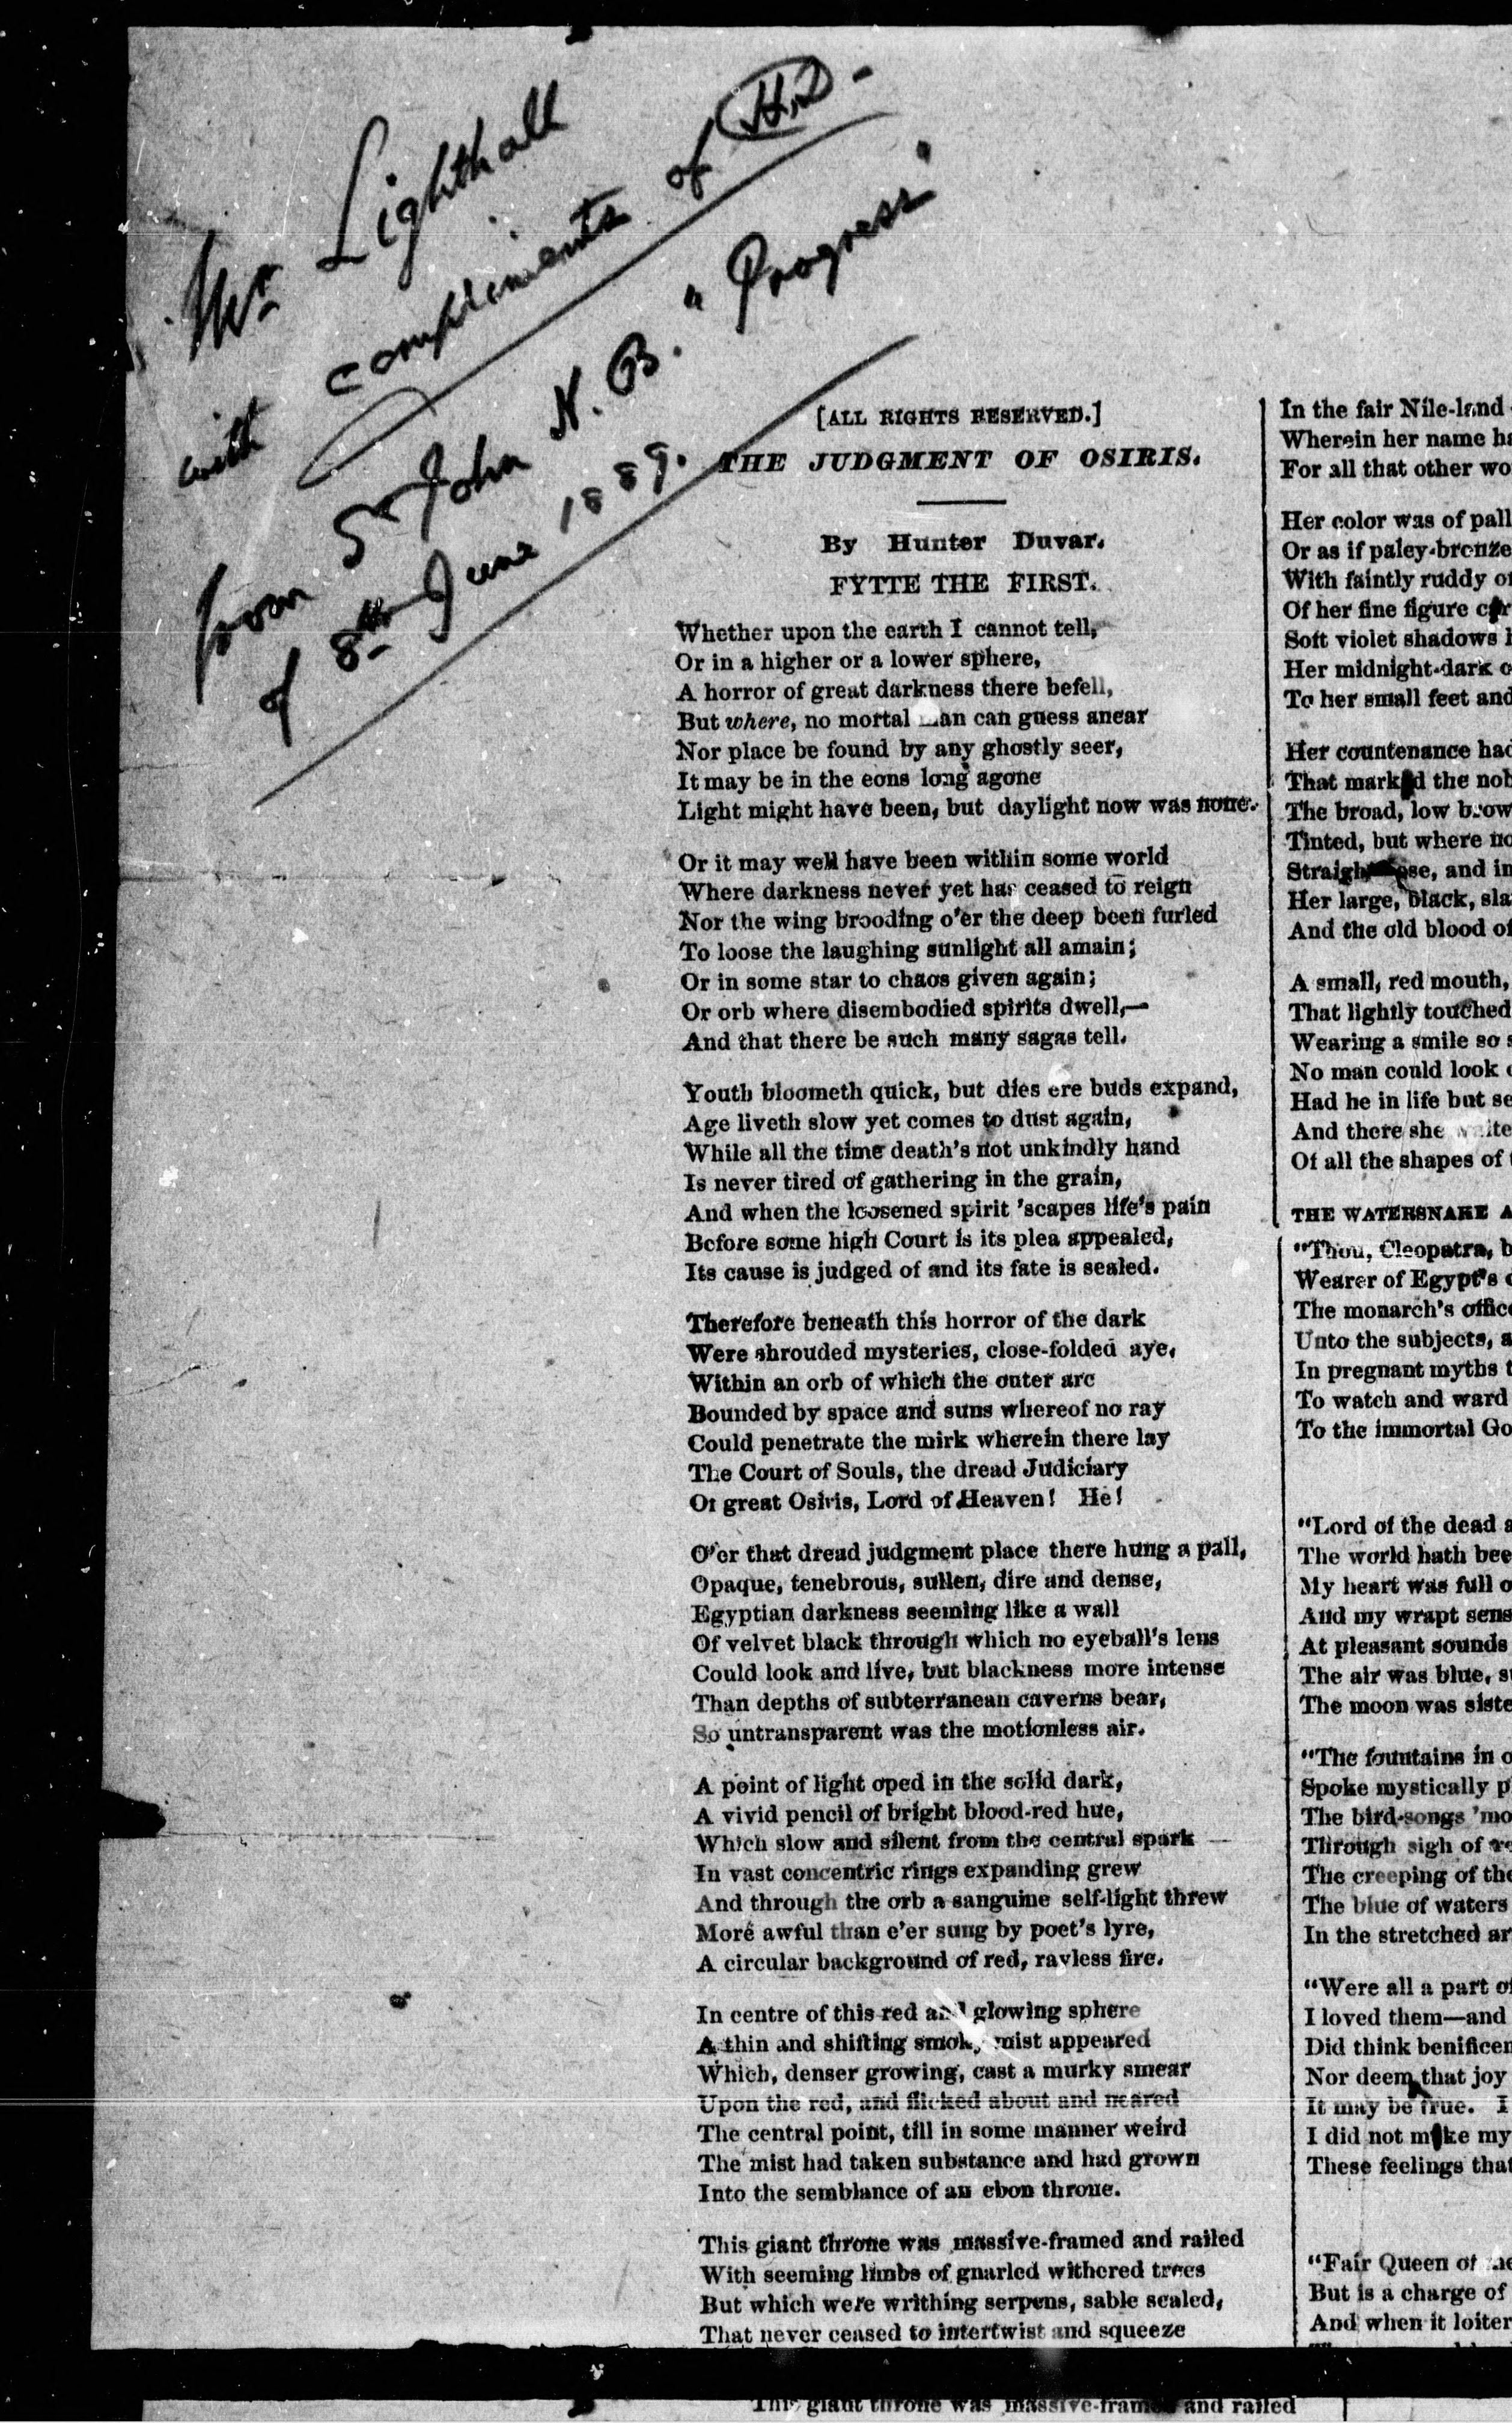 Mr Lighthall
with compliments of H.D.
from St John N.B. "Progress"
of 8th June 1889.
[ALL RIGHTS RESERVED.]
THE JUDGMENT OF OSIRIS.
By Hunter Duvar.
FYTTE THE FIRST.
Whether upon the earth I cannot tell,
Or in a higher or a lower sphere,
A horror of great darkness there befell,
But where, no mortal an can guess anear
Nor place be found by any ghostly seer,
It may be in the eons long agone
Light might have been, but daylight now was none.
Or it may well have been within some world
Where darkness never yet has ceased to reign
Nor the wing brooding o'er the deep been furled
To loose the laughing sunlight all amain;
Or in some star to chaos given again;
Or orb where disembodied spirits dwell,—
And that there be such many sagas tell.
Youth bloometh quick, but dies ere buds expand,
Age liveth slow yet comes to dust again,
While all the time death's not unkindly hand
Is never tired of gathering in the grain,
And when the loosened spirit 'scapes life's pain
Before some high Court is its plea appealed,
Its cause is judged of and its fate is sealed.
Therefore beneath this horror of the dark
Were shrouded mysteries, close-folded aye,
Within an orb of which the outer arc
Bounded by space and suns whereof no ray
Could penetrate the mirk wherein there lay
The Court of Souls, the dread Judiciary
Of great Osiris, Lord of Heaven! He!
O'er that dread judgment place there hung a pall,
Opaque, tenebrous, sullen, dire and dense,
Egyptian darkness seeming like a wall
Of velvet black through which no eyeball's lens
Could look and live, but blackness more intense
Than depths of subterranean caverns bear,
So untransparent was the motionless air.
A point of light oped in the solid dark,
A vivid pencil of bright blood-red hue,
Which slow and silent from the central spark
In vast concentric rings expanding grew
And through the orb a sanguine self-light threw
More awful than e'er sung by poet's lyre,
A circular background of red, rayless fire.
In centre of this red and glowing sphere
A thin and shifting smoky mist appeared
Which, denser growing, cast a murky smear
Upon the red, and flicked about and neared
The central point, till in some manner weird
The mist had taken substance and had grown
Into the semblance of an ebon throne.
This giant throne was massive-framed and railed
With seeming limbs of gnarled withered trees
But which were writhing serpens, sable scaled,
That never ceased to intertwist and squeeze
In the fair Nile-land
Wherein her name ha
For all that other wo
Her color was of pall
Or as if paley-bronze
With faintly ruddy
Of her fine figure
Soft violet shadows
Her midnight-dark
To her small feet and
Her countenance had
That marked the nob
The broad, low brow
Tinted, but where no
and in
Her large, black, sla
And the old blood of
A small, red mouth,
That lightly touched
Wearing a smile so
No man could look
Had he in life but se
And there she
Of all the shapes of
THE WATERSNAKE A
"Thou, Cleopatra, b
Wearer of Egypt's
The monarch's office
Unto the subjects, a
In pregnant myths t
To watch and ward
To the immortal Go
"Lord of the dead a
The world hath bee
My heart was full o
And my wrapt sens
At pleasant sounds
The air was blue, s
The moon was siste
"The fountains in o
Spoke mystically p
The bird-songs 'mo
Through sigh of
The creeping of the
The blue of waters
In the stretched ar
"Were all a part of
I loved them—and
Did think benificen
Nor deem that joy
It may be true. I
I did not make my
These feelings that
"Fair Queen of
But is a charge of
And when it loiter
This giant throne was massive-framed and railed